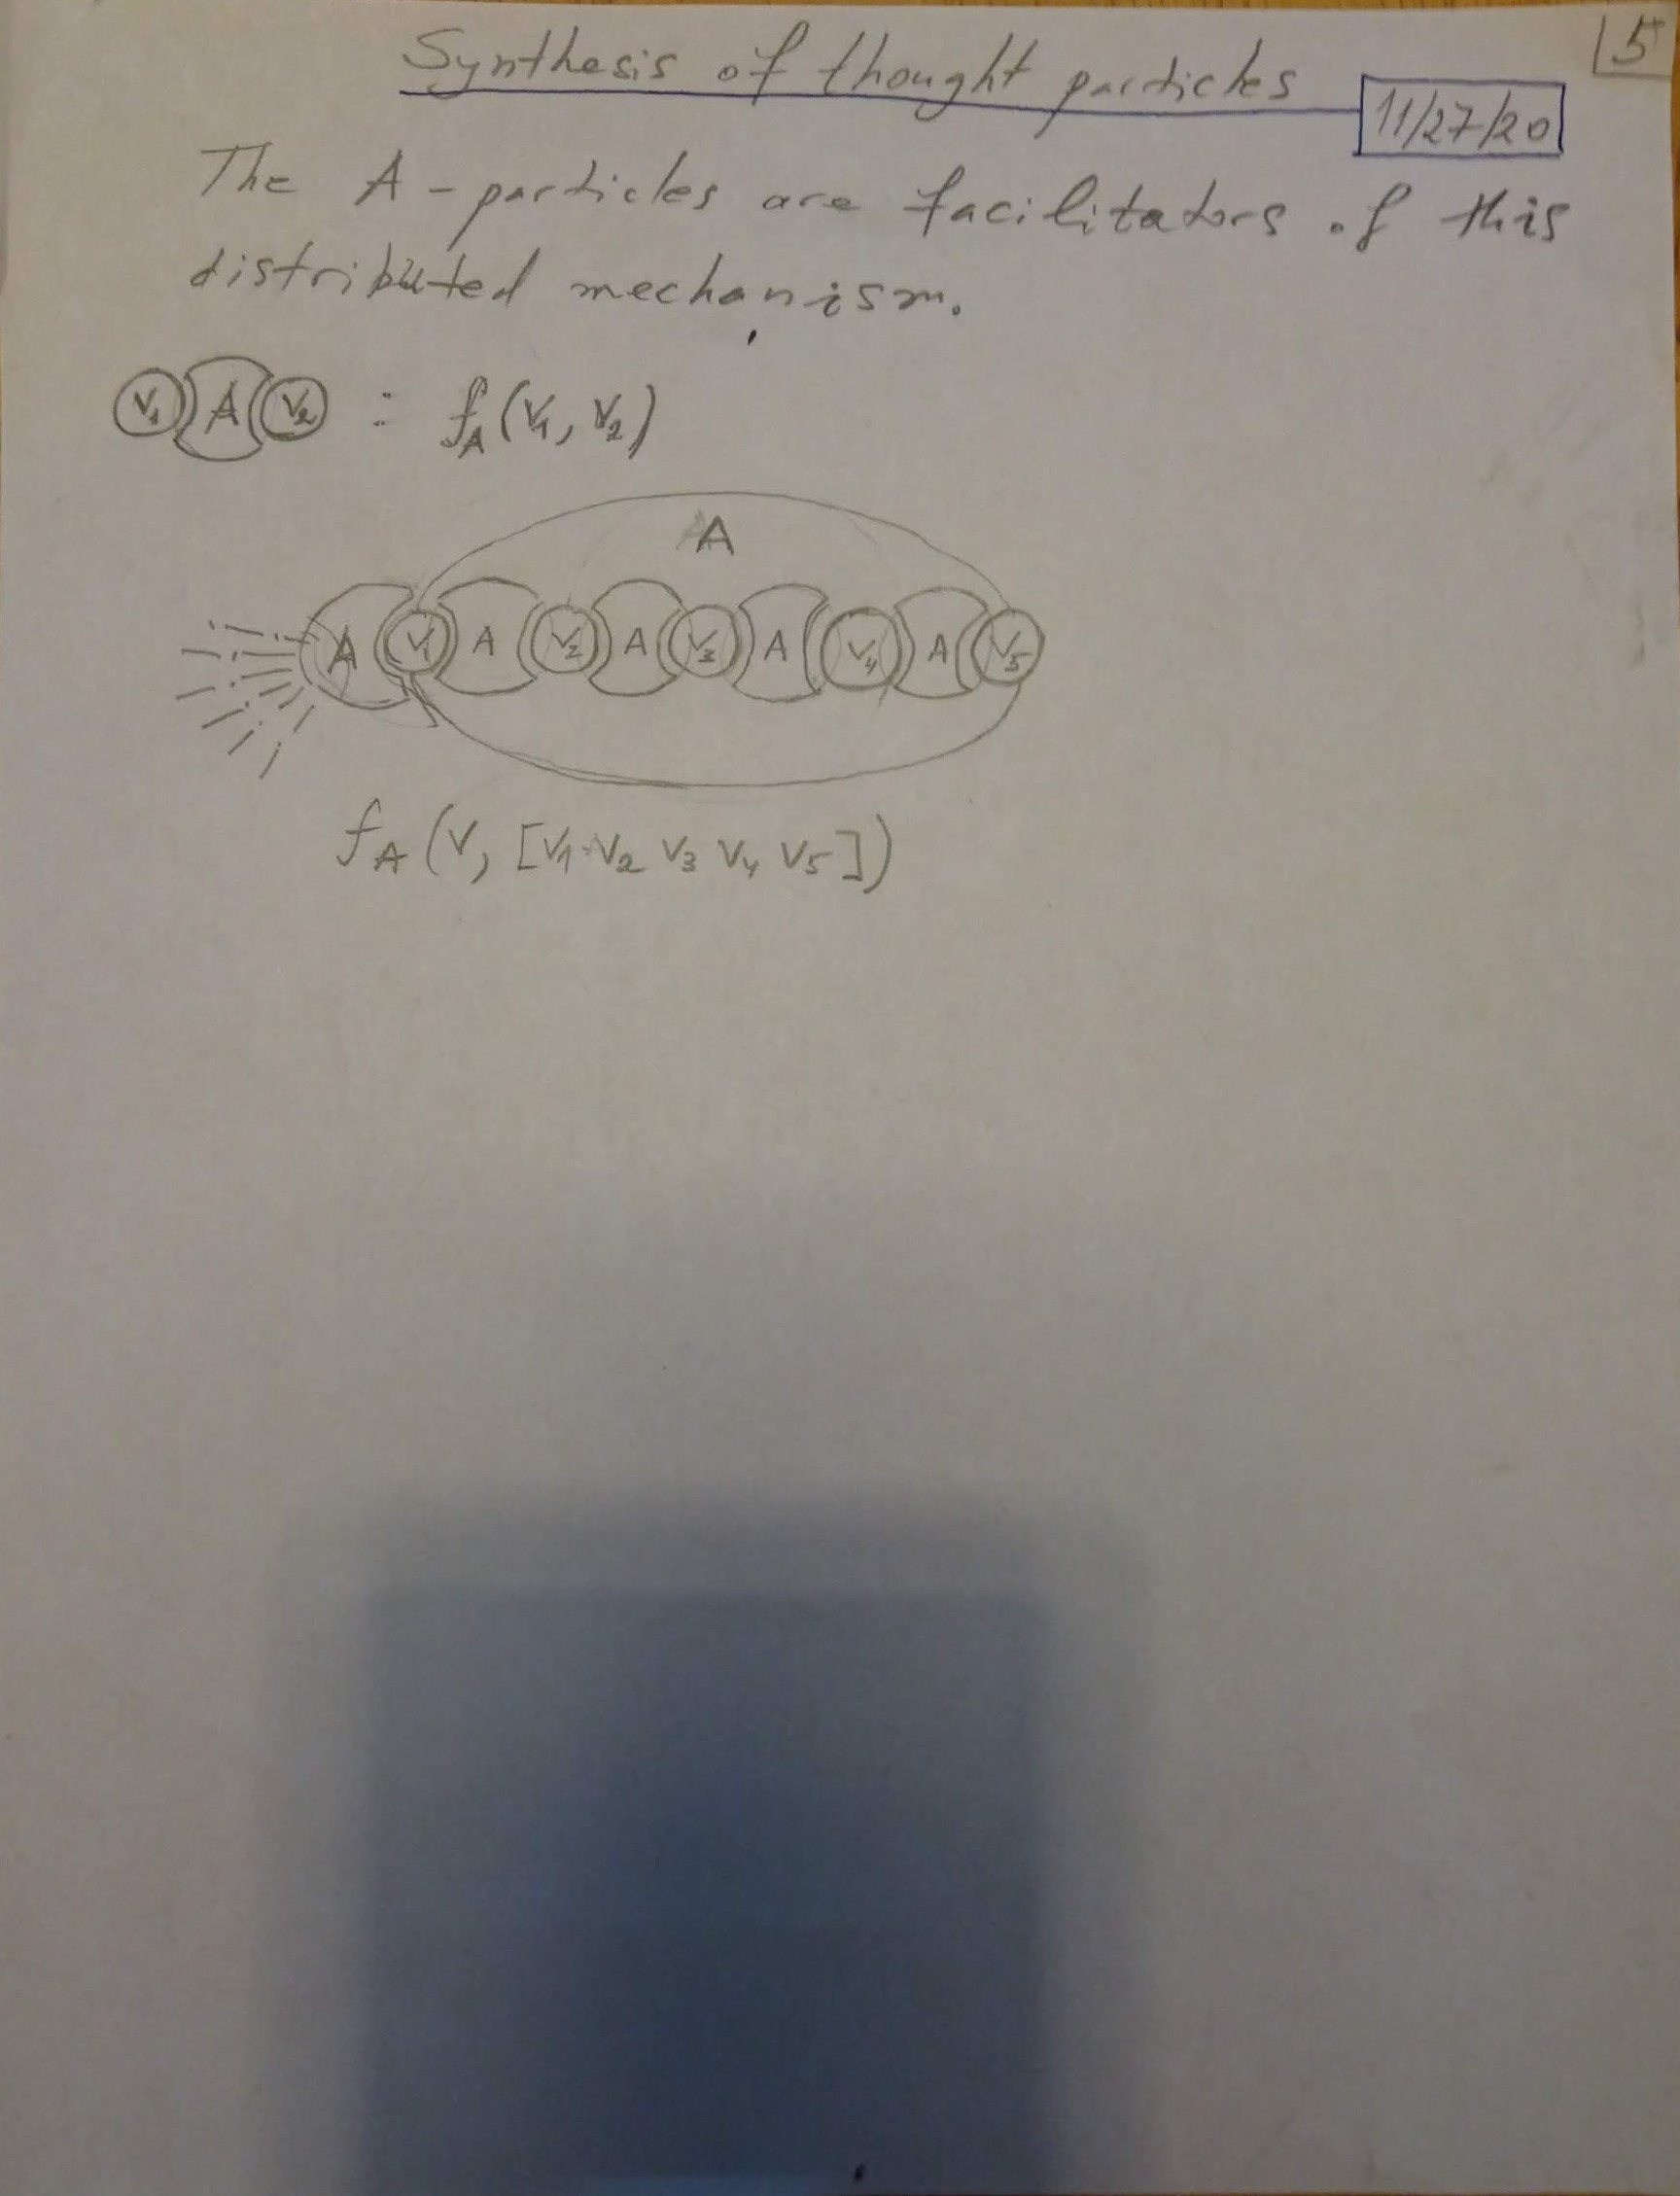 Synthesis of thought particles
5
11/27/20
The A - particles are facilitators of this
distributed mechanism.
V1 A V2 : fA(V1, V2)
A
A V1 A V2 A V3 A V4 A V5
fA(V, [V1 V2 V3 V4 V5])